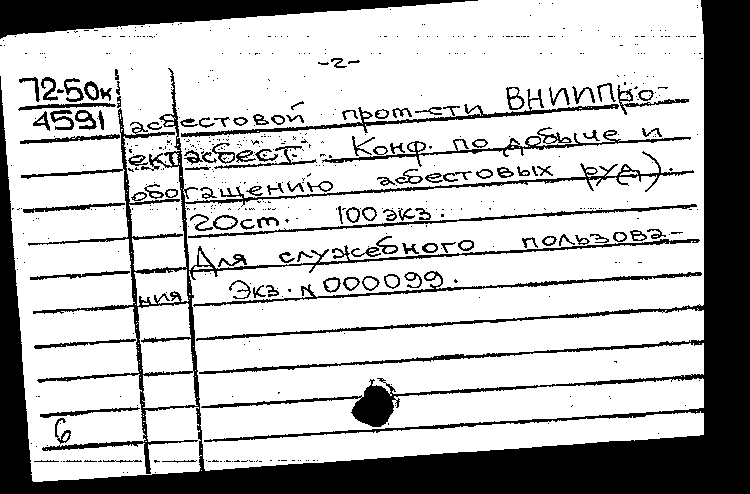 -2-
72-50к
4591
асбестовой пром-сти ВНИИПро-
ектасбест. Конф. по добыче и
обогащению асбестовых руд).
20ст. 100экз.
Для служебного пользова-
ния. Экз. № 000099.
6